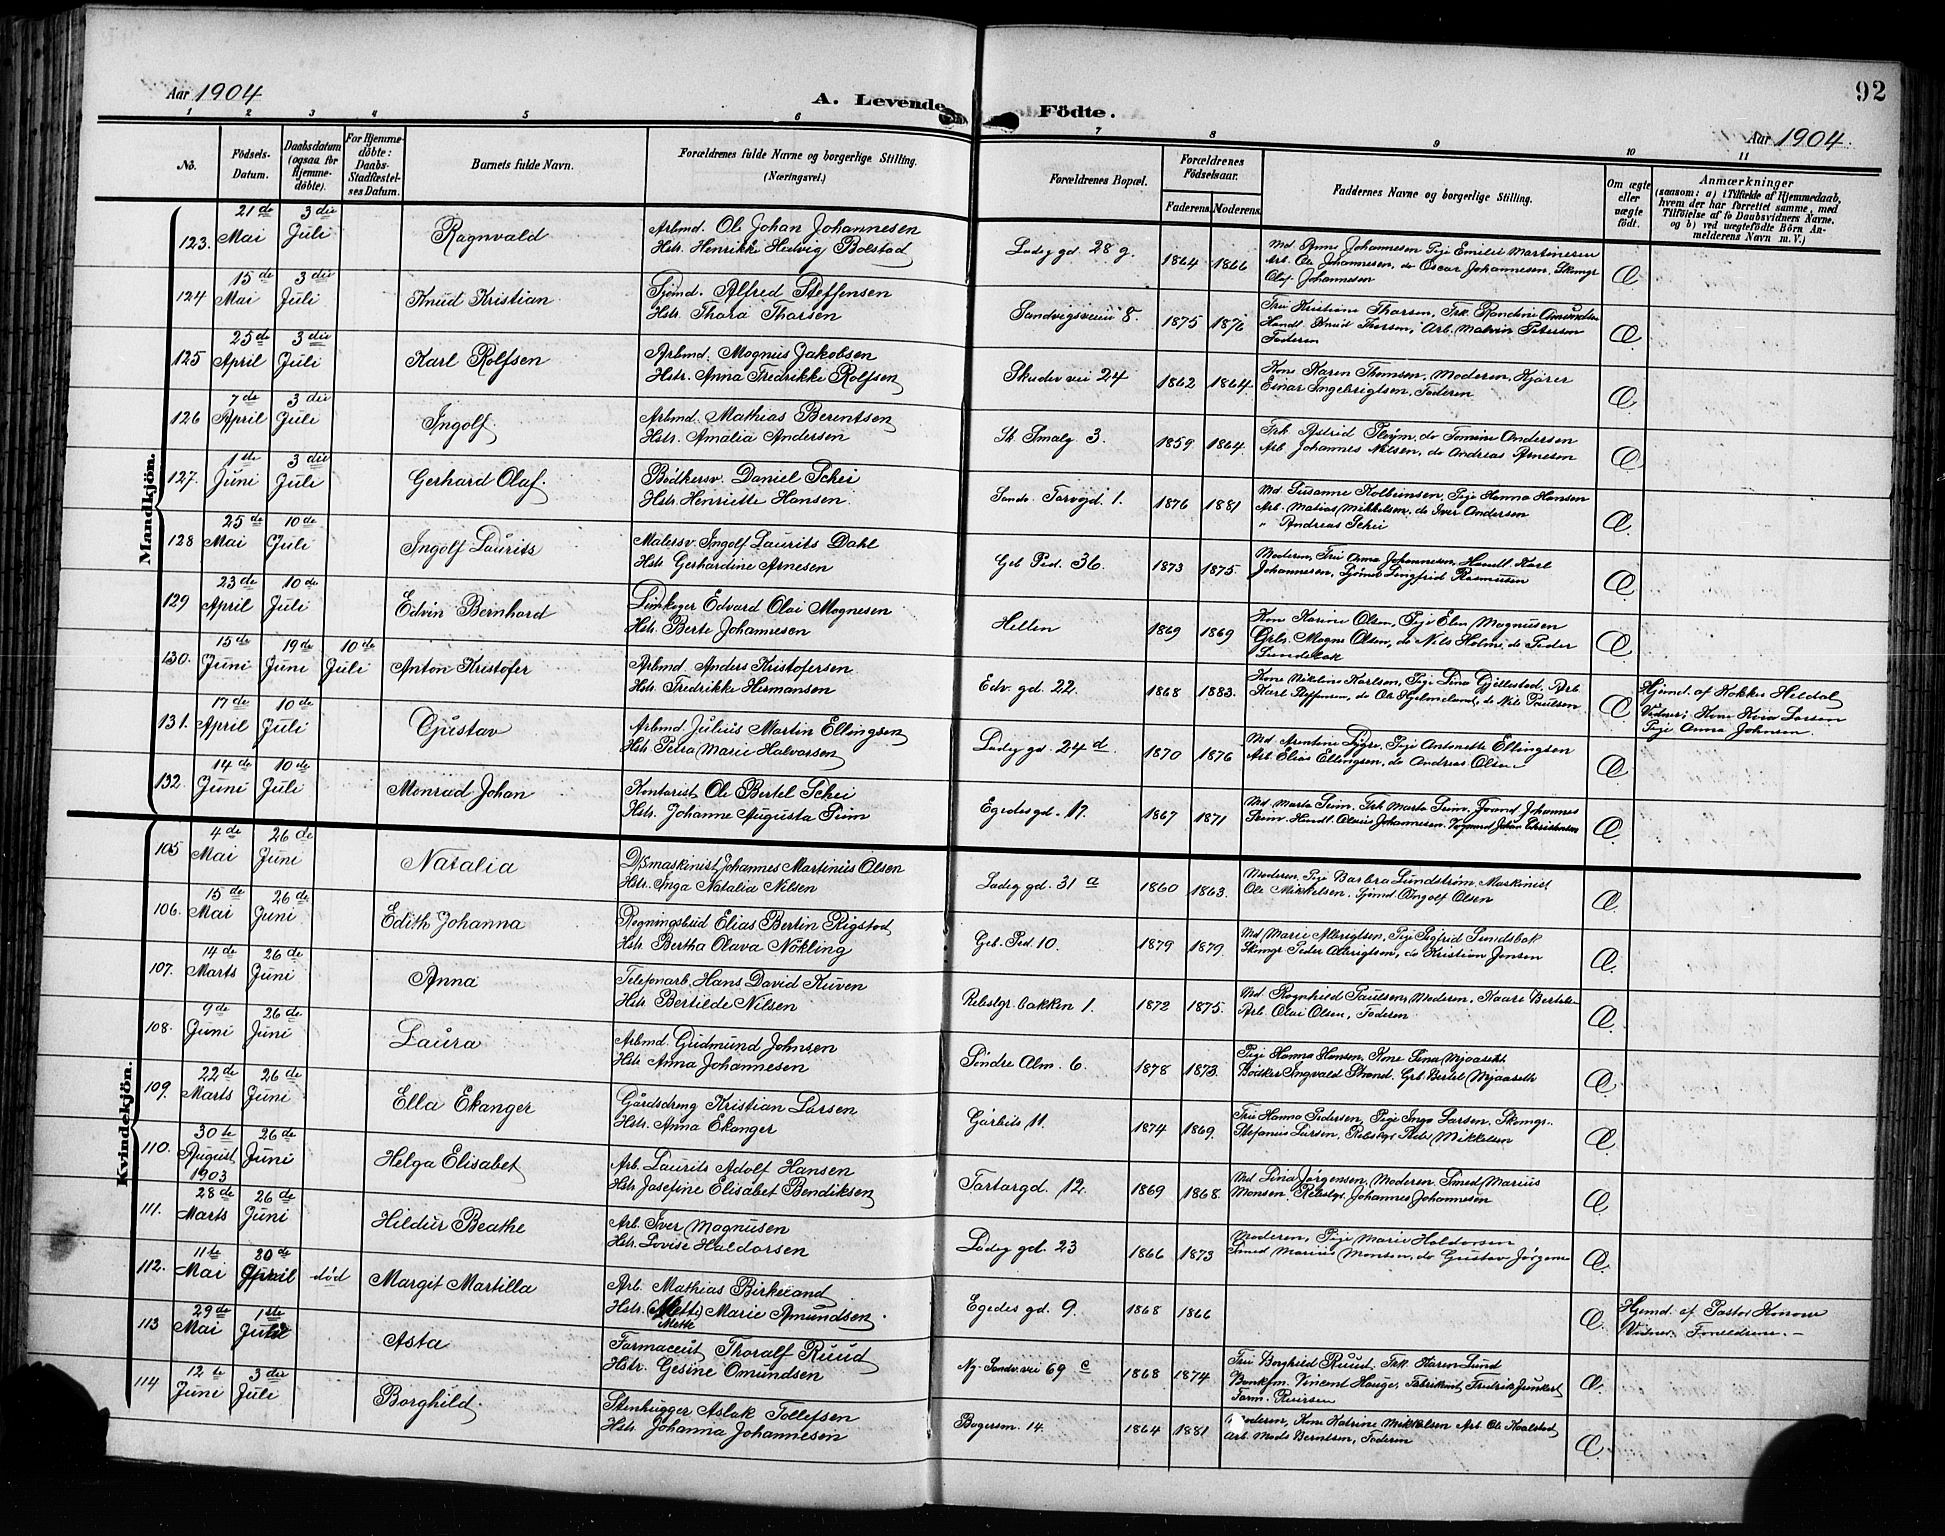 92
Aar 1904
A. Levende Födte.
Aar 1904.
1 2 3 4 5 6 7 8 9 10 11
No.
Födsels-Datum.
Daabsdatum (ogsaa for Hjemme-döbte).
For Hjemme-döbte: Daabs-Stadfæstel-ses Datum.
Barnets fulde Navn.
Forældrenes fulde Navne og borgerlige Stilling. (Næringsvei.)
Forældrenes Bopæl.
Forældrenes Födselsaar.
Faderens. Moderens.
Faddernes Navne og borgerlige Stilling.
Om ægte eller uægte födt.
Anmærkninger
(saasom: a) i Tilfælde af Hjemmedaab, hvem der har forrettet samme, med Tilföielse af to Daabsvidners Navne, og b) ved uægtefödte Börn An-melderens Navn m. V.)
Mandkjön.
123. 21de Mai 3die Juli Ragnvald
Arbmd. Ole Johan Johannesen
Hstr. Henrikke Hedvig Bolstad
Ladeg gd. 28 g. 1864 1866
Md. Anne Johannesen Pige Emilie Martinesen
Arb. Ole Johannesen, do Oscar Johannesen, Skomgr
Olaf Johannesen
Æ
124 15de Mai 3die Juli Knud Kristian
Sjömd. Alfred Steffensen
Hstr. Thora Thorsen
Sandvigsveien 8. 1875 1876
Fru Kristiane Thorsen, Frk. Randine Omundsen
Handl. Knud Thorsen, Arb. Malvin Petersen
Faderen
Æ
125 25de April 3die Juli Karl Rolfsen
Arbmd. Mognus Jakobsen
Hstr. Anna Fredrikke Rolfsen
Skudev. vei 24 1862 1864.
Kone Karen Thomsen, Moderen, Kjörer
Einar Ingebrigtsen, Faderen
Æ
126 7de April 3die Juli Ingolf.
Arbmd. Mathias Berentsen
Hstr. Amalia Andersen
St. Smalg 3. 1859 1864.
Frk Astrid Fløym, do Tomine Andersen
Arb. Johannes Nilsen, do Andreas Arnesen
Æ
127. 1ste Juni 3die Juli Gerhard Olaf.
Bödkersv. Daniel Schei
Hstr. Henriette Hansen
Sandv. Torvgd. 1. 1876 1881
Md. Susanne Kolbeinsen, Pige Hanna Hansen
Arb. Matias Mikkelsen, do Iver Andersen
" Andreas Schei
Æ
128 25de Mai 10de Juli Ingolf Laurits
Malersv. Ingolf Laurits Dahl
Hstr. Gerhardine Arnesen
Geb Ped. 36. 1873 1875.
Moderen, Fru Anna Johannesen, Handl. Karl
Johannesen, Sjömd Singfrid Rasmussen
Æ
129 23de April 10de Juli Edvin Bernhard
Limkoger Edvard Olai Mognesen
Hstr. Berte Johannesen
Hellen 1869 1869
Kone Karine Olsen, Pige Elen Magnusen
Grbr. Magne Olsen, do Nils Holme, do Peder
Sundsbak
Æ
130. 15de Juni 19de Juni 10de Juli Anton Kristofer
Arbmd. Anders Kristofersen
Hstr. Fredrikke Hermansen
Edv. gd. 22. 1868 1883.
Kone Nikoline Karlsen, Pige Lina Gjellestad, Arb.
Karl Steffensen, do Ole Hjelmeland, do Nils Paulsen
Æ
Hjemd. af Kokken Heldal
Vidner: Kone Kaia Larsen
Pige Anna Johnsen.
131. 17de April 10de Juli Gustav
Arbmd Julius Martin Ellingsen
Hstr. Petra Marie Halvorsen
Ladeg gd. 24 d. 1870 1876
Md. Arentine Sygre, Pige Antonette Ellingsen
Arb. Elias Ellingsen, do Andreas Olsen
Æ
132. 14de Juni 10de Juli Monrad Johan
Kontorist Ole Bertel Schei
Hstr. Johanne Augusta Siem
Egedes gd. 17. 1867 1871
Md. Marta Siem, Frk Marta Siem, Johannes
Siem, Handl. Olaus Johannesen. Johan Christensen
Æ
Kvindekjön.
105 4de Mai 26de Juni Natalia
D/Smaskinist Johannes Martinius Olsen
Hstr. Inga Natalia Nilsen
Ladeg gd. 31 a 1860 1863.
Moderen, Pige Barbra Lundström, Maskinist
Ole Mikkelsen, Sjömd Ingolf Olsen
Æ
106. 15de Mai 26de Juni Edith Johanna
Regningsbud Elias Bertin Rigstad
Hstr. Bertha Olava Nökling
Geb. Ped. 10. 1879 1879.
Md. Marie Albrigtsen, Pige Sigfrid Sundsbak
Skomgr Peder Albrigtsen, do Kristian Jensen
Æ
107. 14de Marts 26de Juni Anna
Telefonarb. Hans David Kuven
Hstr. Bertilde Nilsen
Rebslgr. bakken 1. 1872 1875.
Md. Ragnhild Paulsen, Moderen, Kaare
Arb. Olai Olsen, Faderen
Æ
108. 9de Juni 26de Juni Laura
Arbmd. Gudmund Johnsen
Hstr. Anna Johannesen
Söndre Alm. 6. 1878 1873.
Pige Hanna Hansen, Kone Lina Mjaaseth
Bödker Ingvald Strand. Grb. Bertel Mjaaseth
Æ
109. 22de Marts 26de Juni Ella Ekanger
Gårdsdreng Kristian Larsen
Hstr. Anna Ekanger
Gårbits 11. 1874 1869.
Fru Hanna Pedersen, Pige Inga Larsen, Skomgr.
Stefanius Larsen, Rebslgr. Mikkelsen
Æ
110. 30te August 1903 26de Juni Helga Elisabet
Arb. Laurits Adolf Hansen
Hstr. Josefine Elisabet Bendiksen
Tartargd. 12. 1869 1868.
Md Lina Jørgensen, Moderen. Smed Marius
Monsen, Rebslgr. Johannes Johannesen
Æ
111. 28de Marts 26de Juni Hildur Beathe
Arb. Iver Magnusen
Hstr. Lovise Haldorsen
Ladeg gd. 23 1866 1873
Moderen, Pige Marie Haldorsen
Smed Marius Monsen, do Gustav Jørgens
Æ.
112. 11te Mai 20de død Margit Martilla
Arb. Mathias Birkeland
Hstr. (Mette) Marie Amundsen.
Mette
Egedes gd. 9. 1868 1866
Æ.
Hjemd. af Pastor Konow
Vidner. Forældrene. -
113 29de Mai 1ste Juli Asta
Farmaceut Thoralf Ruud
Hstr. Gesine Omundsen
Ny. Sandv. vei 69 c 1868 1874
Fru Borghild Ruud, Frk. Karen Lund
Bankfm. Vincent Hauge, Fabrikeier Fredrik Junkert
Farm.
Æ.
114 12te Juni 3die Juli Borghild.
Stenhugger Aslak Tollefsen
Hstr. Johanna Johannesen
Bøgersm. 14. 1864 1881
Moderen, Kone Katrine Mikkelsen Arb. Ole Koalstad
Arb. Mads Berntsen, Faderen
Æ.